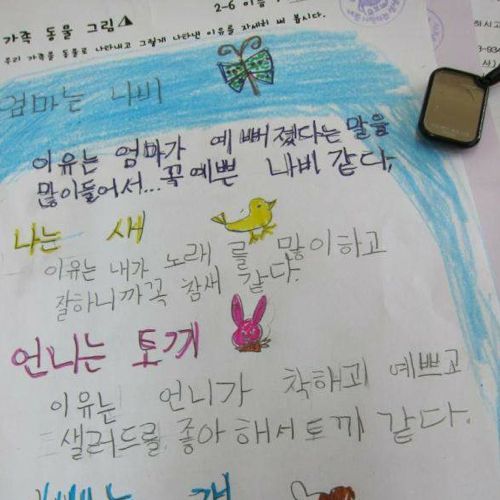 가족 동물 그림
2-6 이름
우리 가족을 동물로 나타내고 그렇게 나타낸 이유를 자세히 써 봅시다.
엄마는 나비
이유는 엄마가 예뻐졌다는 말을
많이들어서...꼭 예쁜 나비 같다,
나는 새
이유는 내가 노래를 많이하고
잘하니까꼭 참새 같다.
언니는 토끼
이유는 언니가 착해고 예쁘고
샐러드를 좋아해서토끼 같다.